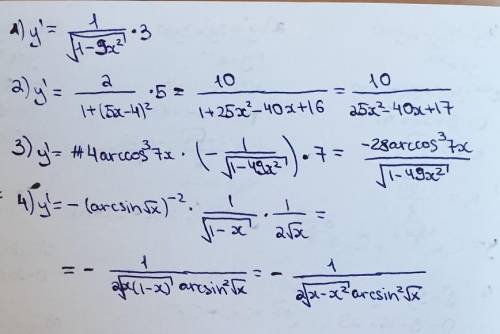 1) y' = 1/√(1-9x²) · 3
2) y' = 2/(1+(5x-4)²) · 5 = 10/(1+25x²-40x+16) = 10/(25x²-40x+17)
3) y' = 4arccos³7x · (-1/√(1-49x²)) · 7 = -28arccos³7x/√(1-49x²)
4) y' = -(arcsin√x)⁻² · 1/√(1-x) · 1/(2√x) =
= - 1/(2√(x(1-x)) arcsin²√x) = - 1/(2√(x-x²) arcsin²√x)